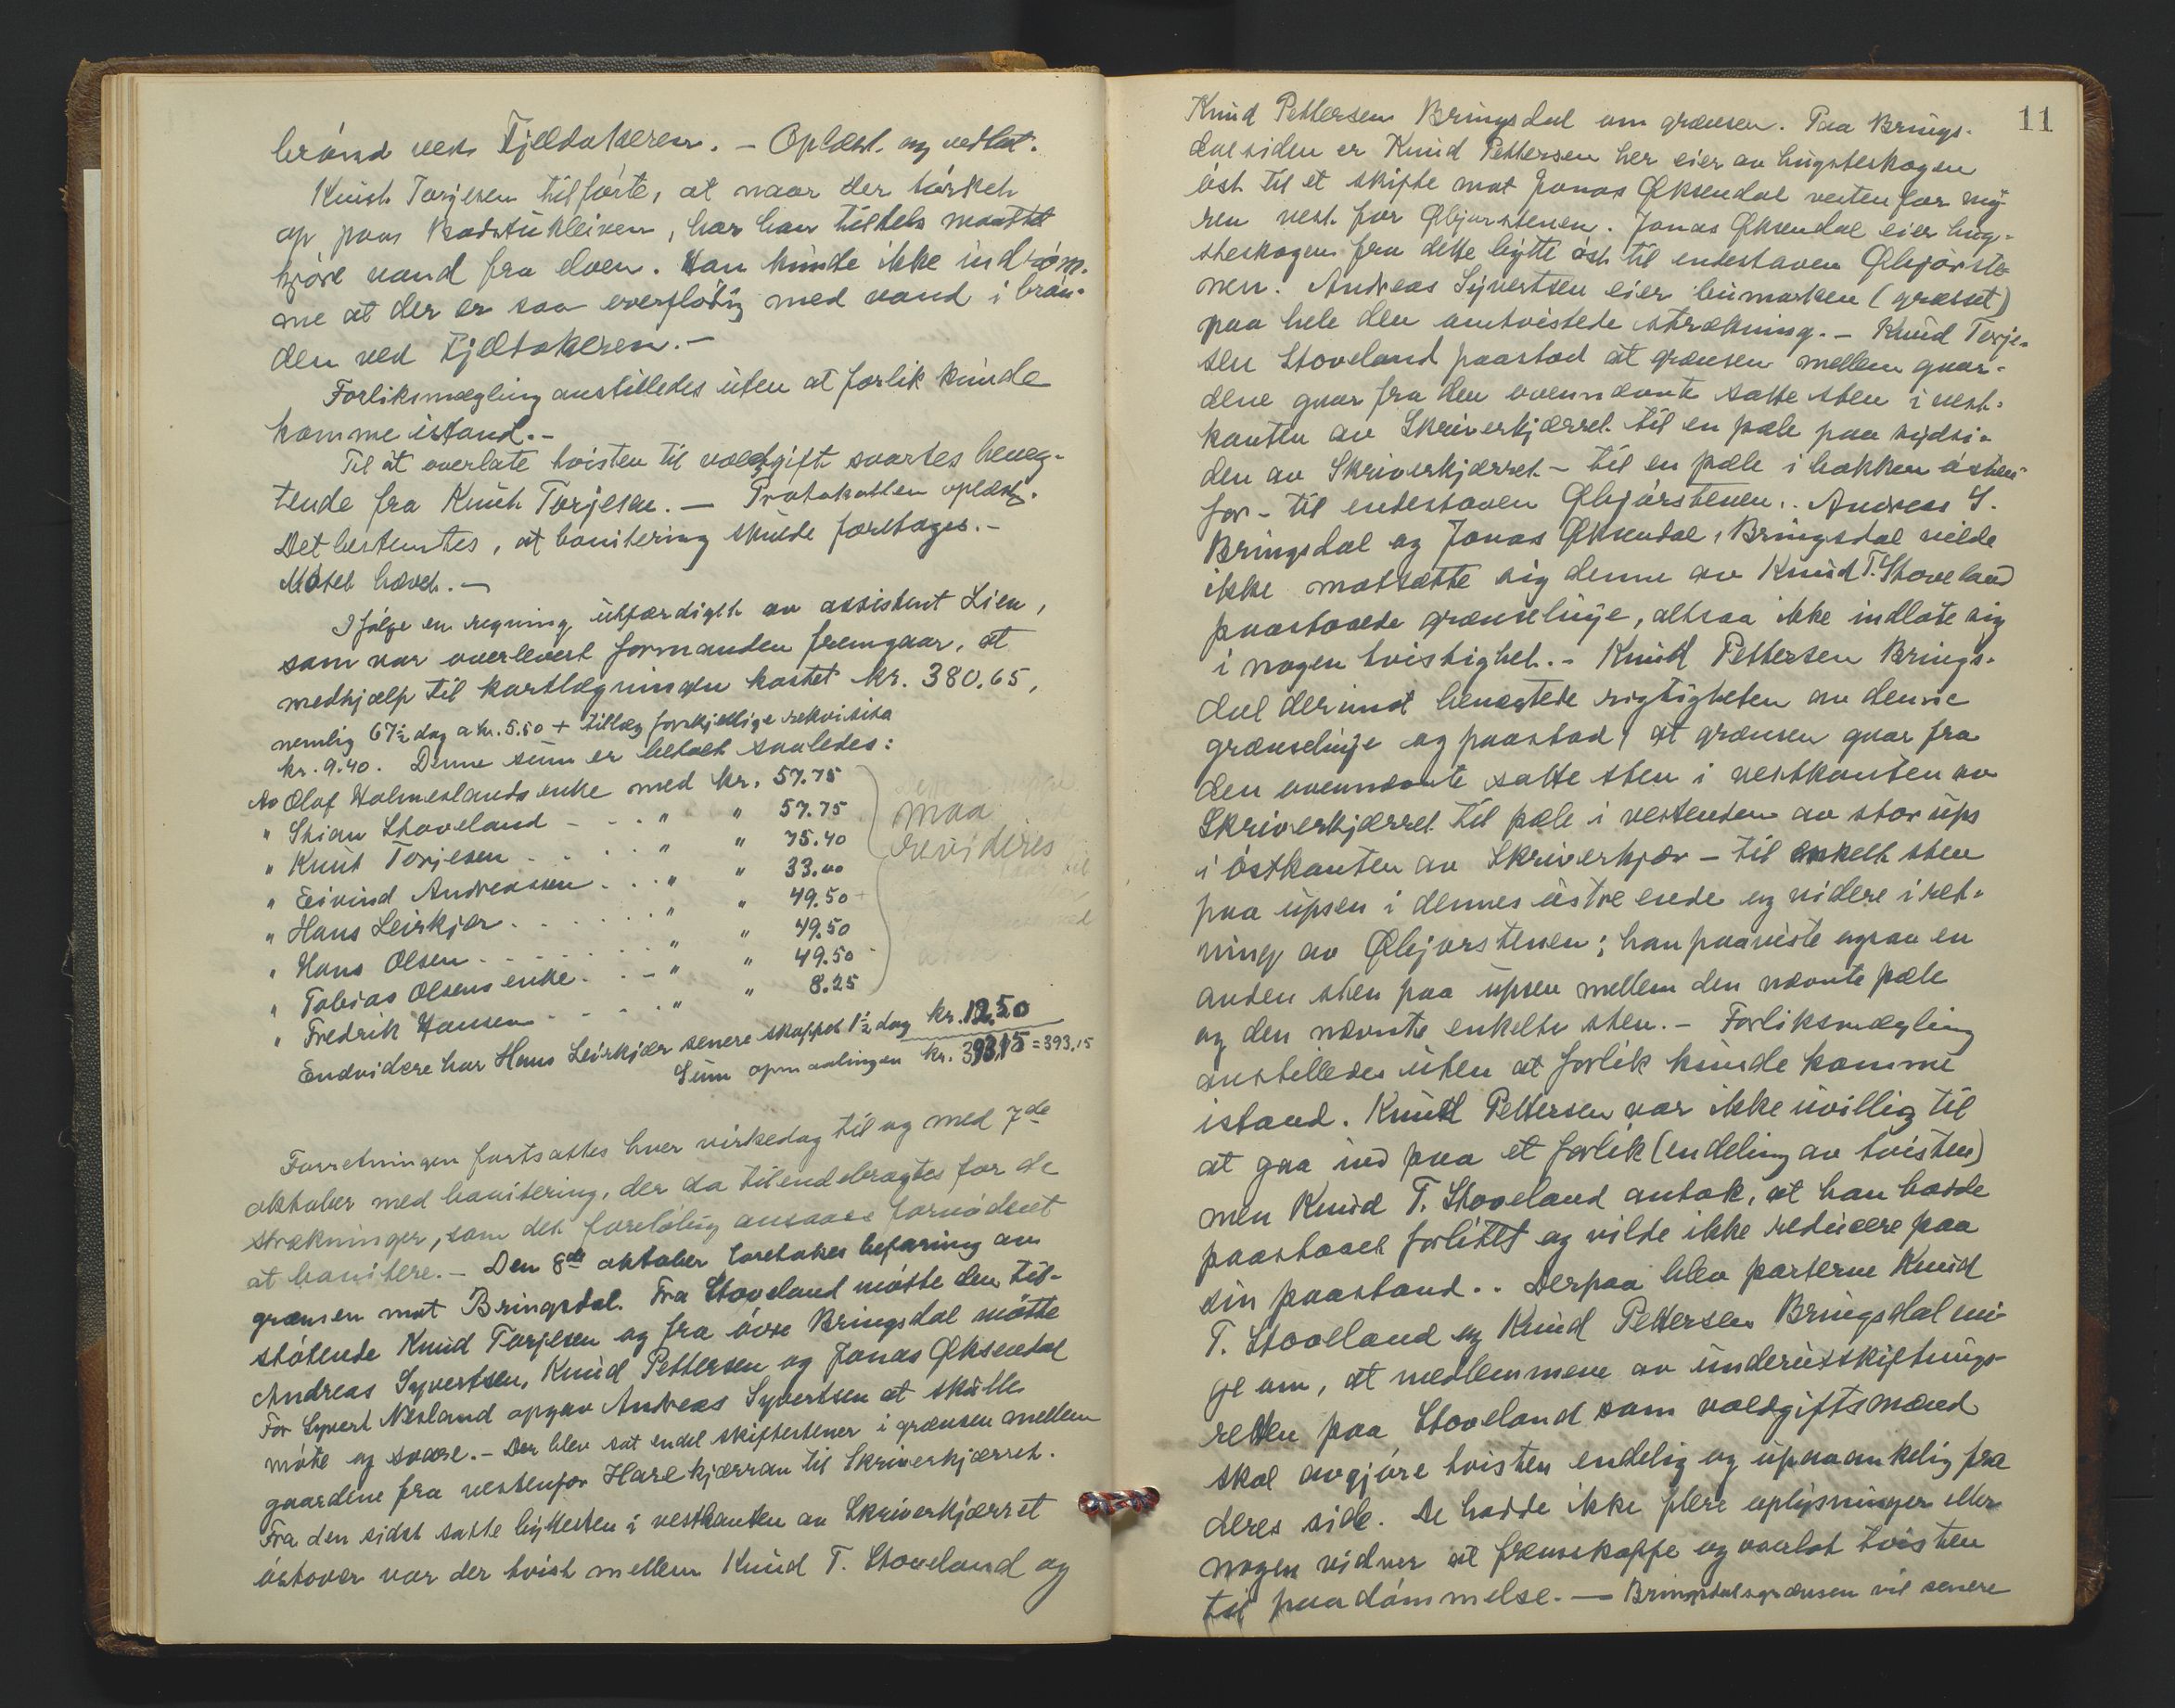 brønd ved Fjeldakeren. – Oplæst og vedtat.
Knut Torjesen tilførte, at naar der tørket
op paa Badstukleiven, har han tildels maattet
kjøre vand fra elven. Han kunde ikke indrøm-
me at der er saa overflødig med vand i brøn-
den ved Fjeldakeren. –
Forliksmegling anstilledes uten at forlik kunde
komme istand. –
Til at overlate tvisten til voldgift svartes beneg-
tende fra Knut Torjesen. – Protokollen oplæst.
Det bestemtes, at bonitering skulde foretages. –
Møtet hævet. –
Ifølge en regning utfærdiget av assistent Lien,
som var overlevert formanden fremgaar, at
medhjælp til kartlægningen kostet kr. 380.65,
nemlig 67½ dag a kr. 5.50 + tillæg forskjellige rekvisita
kr. 9.40. Denne sum er betalt saaledes:
Av Olaf Holmeslands enke med kr. 57.75
" Stian Stoveland - - - " " 57.75 maa
" Knut Torjesen - - - " " 75.40 revideres
" Eivind Andreassen - - - " " 33.00
" Hans Leirkjær - - - " " 49.50
" Hans Olsen - - - " " 49.50
" Tobias Olsens enke - - - " " 49.50
" Fredrik Hansen - - - " " 8.25
Endvidere har Hans Leirkjær senere skaffet 1½ dag kr. 12.50
Sum opmaalingen kr. 393.15 = 393.15
Forretningen fortsattes hver virkedag til og med 7de
oktober med bonitering, der da tilendebragtes for de
strækninger, som det foreløbig ansaaes fornødent
at bonitere. – Den 8de oktober foretokes befaring av
grænsen mot Bringsdal. Fra Stoveland møtte den til-
støtende Knud Torjesen og fra øvre Bringsdal møtte
Andreas Syvertsen, Knud Pettersen og Jonas Øksendal
For Syvert Nesland opgav Andreas Syvertsen at skulle
møte og svare. – Der blev sat endel skiftestener i grænsen mellem
gaardene fra vestenfor Harekjærran til Skriverkjærret.
Fra den sidst satte byttesten i vestkanten av Skriverkjærret
østover var der tvist mellem Knud T. Stoveland og
11
Knud Pettersen Bringsdal om grænsen. Paa Brings-
dalsiden er Knud Pettersen her eier av hugsterskogen
øst til et skifte mot Jonas Øksendal vestenfor my-
ren vest for Øbjørstenen. Jonas Øksendal eier hug-
sterskogen fra dette bytte øst til endestaven Øbjørste-
nen. Andreas Syvertsen eier bumarken (græsset)
paa hele den omtvistede strækning. – Knud Torje-
sen Stoveland paastod at grænsen mellem gaar-
dene gaar fra den ovennævnte satte sten i vest-
kanten av Skriverkjærret til en pæle paa sydsi-
den av Skriverkjærret – til en pæle i bakken østen-
for – til endestaven Øbjørstenen. Andreas S.
Bringsdal og Jonas Øksendal, Bringsdal vilde
ikke motsætte sig denne av Knud T. Stoveland
paastaaede grænselinje, altsaa ikke indlate sig
i nogen tvistighet. – Knud Pettersen Brings-
dal derimot benegtede rigtigheten av denne
grænselinje og paastod, at grænsen gaar fra
den ovennævnte satte sten i vestkanten av
Skriverkjærret til pæle i vestenden av stor ups
i østkanten av Skriverkjær – til enkelt sten
paa upsen i dennes østre ende og videre i ret-
ning av Øbjørstenen; han paaviste ogsaa en
anden sten paa upsen mellem den nævnte pæle
og den nævnte enkelte sten. – Forliksmægling
anstilledes uten at forlik kunde komme
istand. Knud Pettersen var ikke uvillig til
at gaa ind paa et forlik (en deling av tvisten)
men Knud T. Stoveland antok, at han hadde
paastaaet forlitet og vilde ikke reducere paa
sin paastand. . Derpaa blev parterne Knud
T. Stoveland og Knud Pettersen Bringsdal eni-
ge om, at medlemmene av underutskiftnings-
retten paa Stoveland som voldgiftsmænd
skal avgjøre tvisten endelig og upaaankelig fra
deres side. De hadde ikke flere oplysninger eller
nogen vidner at fremskaffe og overlot tvisten
til paadømmelse. – Bringsdalsgrænsen vil senere